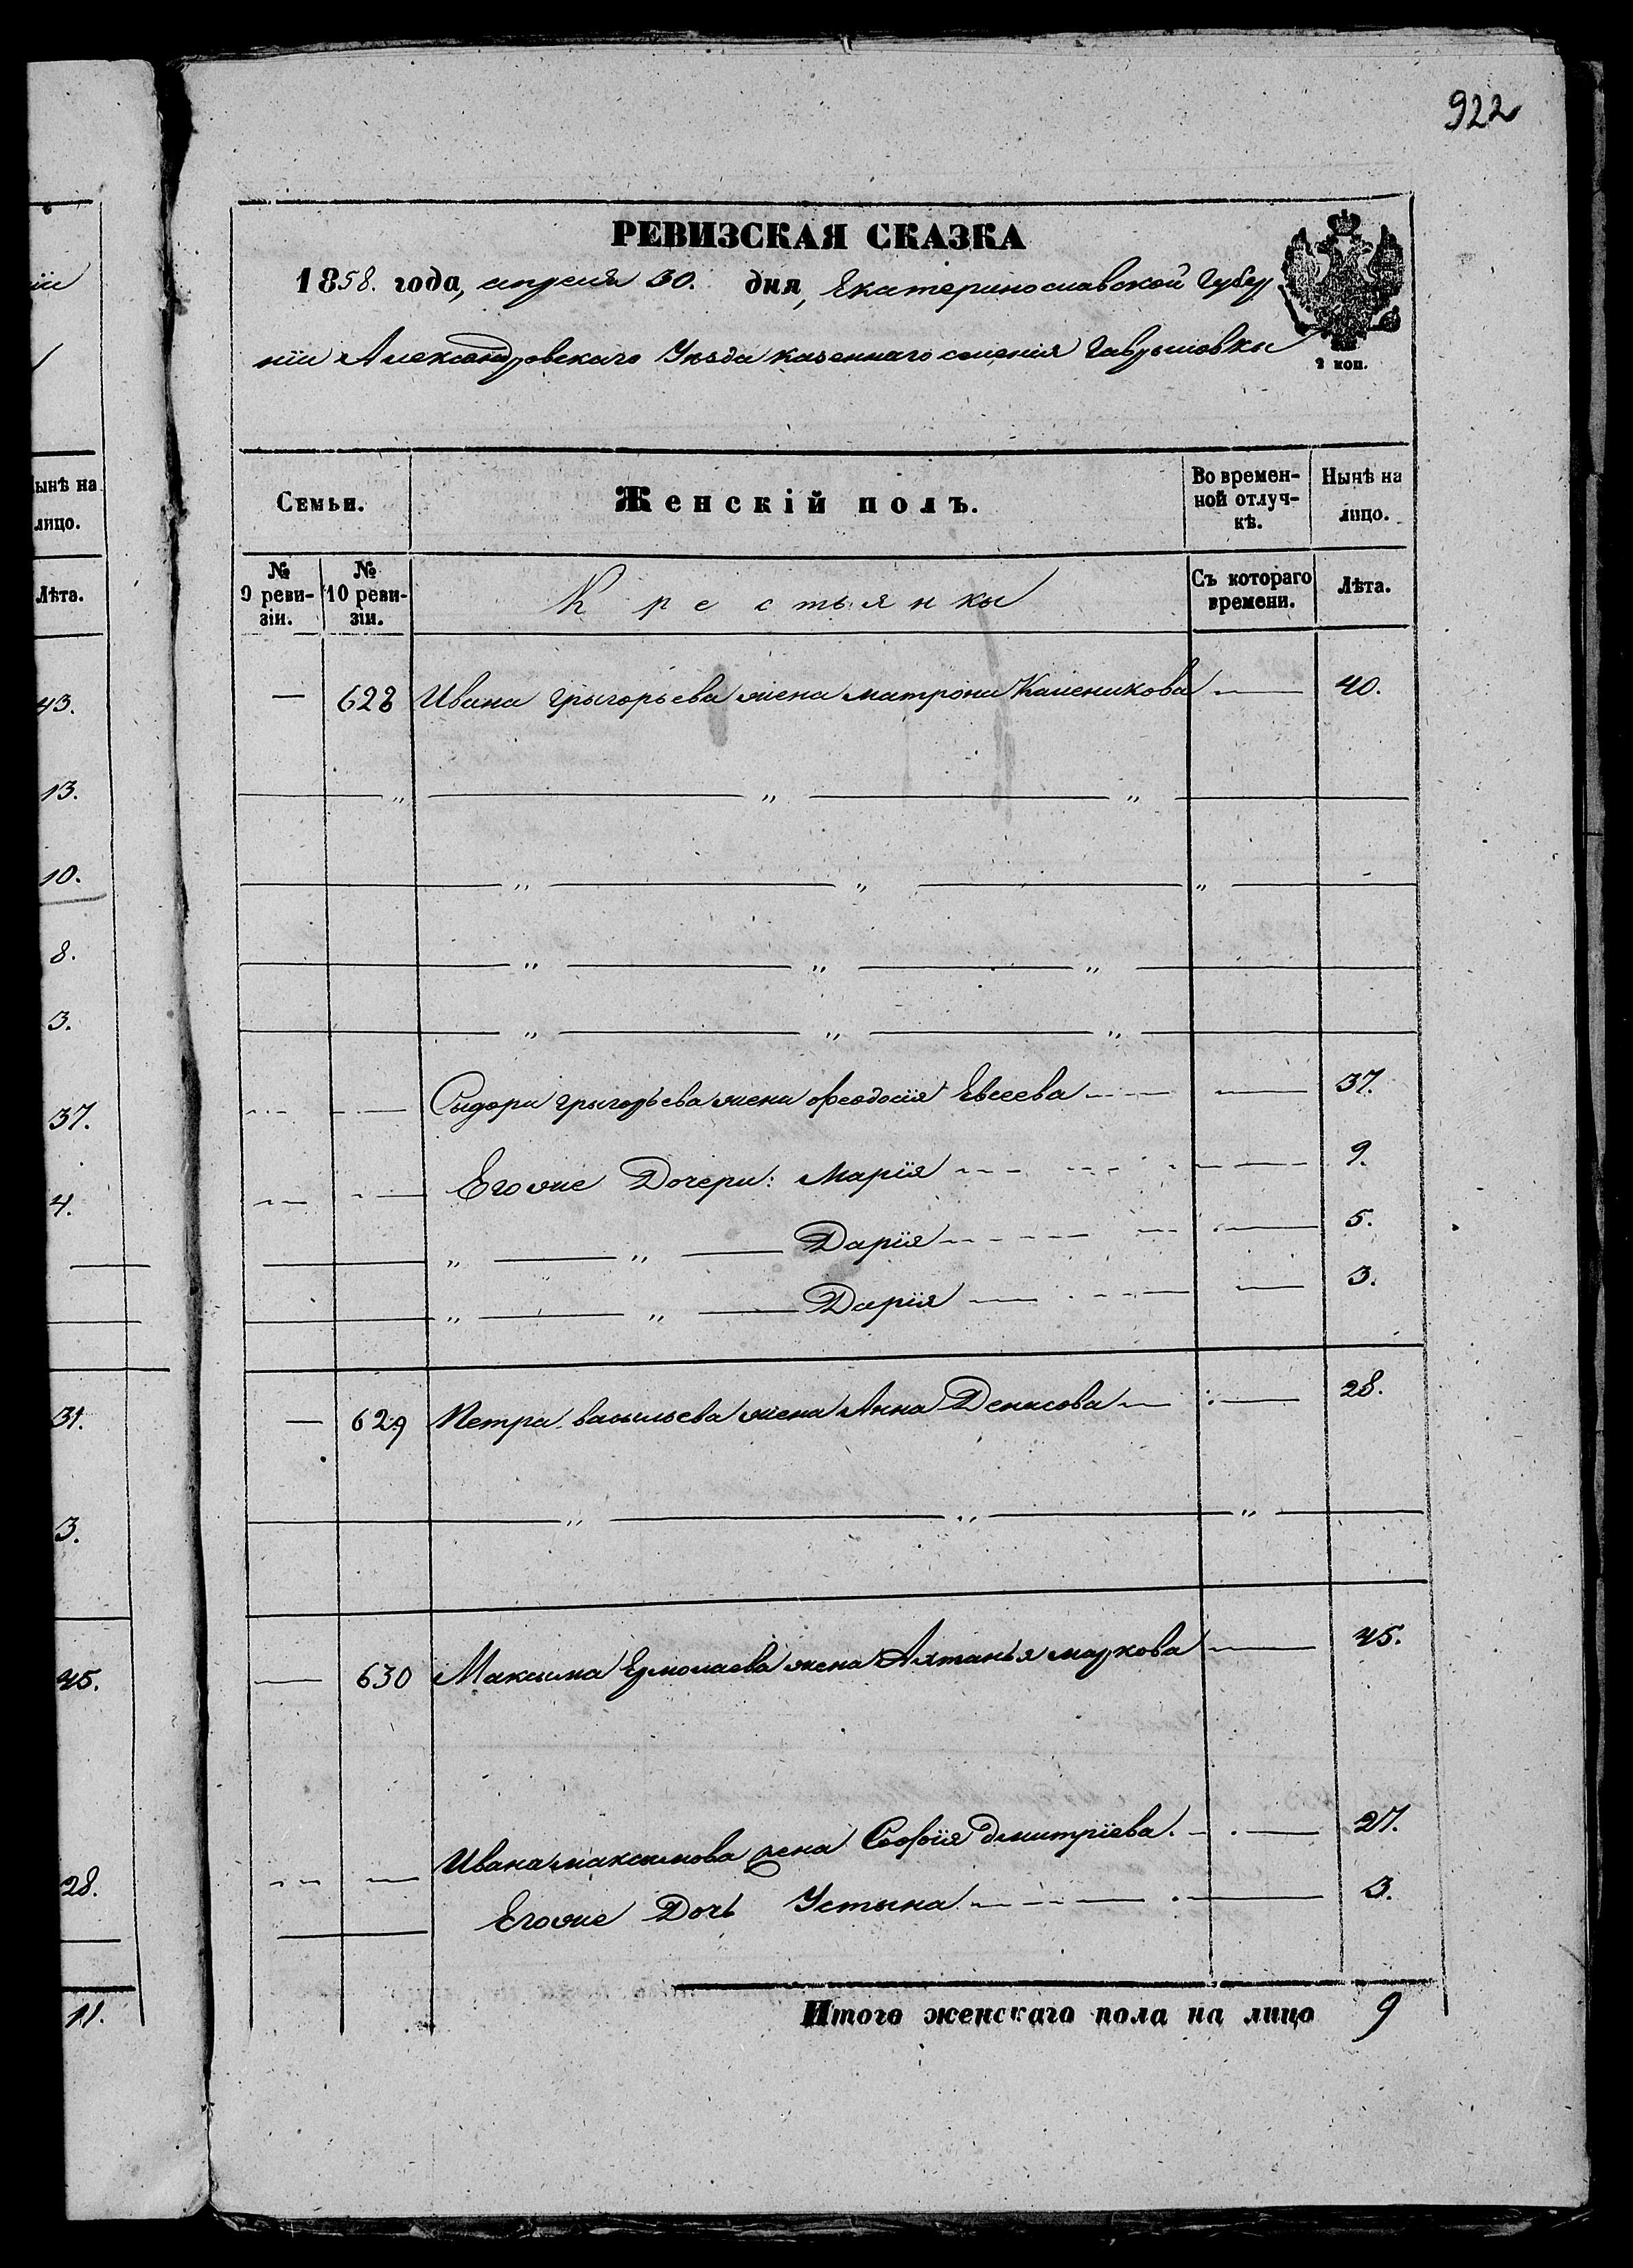 922
РЕВИЗСКАЯ СКАЗКА
1858. года, апреля 30. дня, Екатеринославской Губер
нїи Александровскаго Уезда казеннаго селенія Гаврыловки
2 коп.
Семьи. Женскій полъ. Во времен-ной отлуч-кѣ. Нынѣ на лицо.
№ 9 реви-зіи. № 10 реви-зіи. Крестьянкы Съ котораго времени. Лѣта.
— 628 Ивана Грыгорьева жена Матрона Каленикова — 40.
Сыдора Грыгорьева жена Феодосїя Евсеева — 37.
Егоже Дочери: Марїя — 9.
„ — „ — Дарїя — 5.
„ — „ — Дарїя — 3.
— 629 Петра Васыльева жена Анна Денисова — 28.
— 630 Максыма Ермолаева жена Маркова — 45.
Ивана Максымова жена Софїя Дмитрїева. — 27.
Егоже Дочь Устына — 3.
Итого женскаго пола на лицо 9
ынѣ на
лицо.
Лѣта.
43.
13.
10.
8.
3.
37.
4.
31.
3.
45.
28.
11.